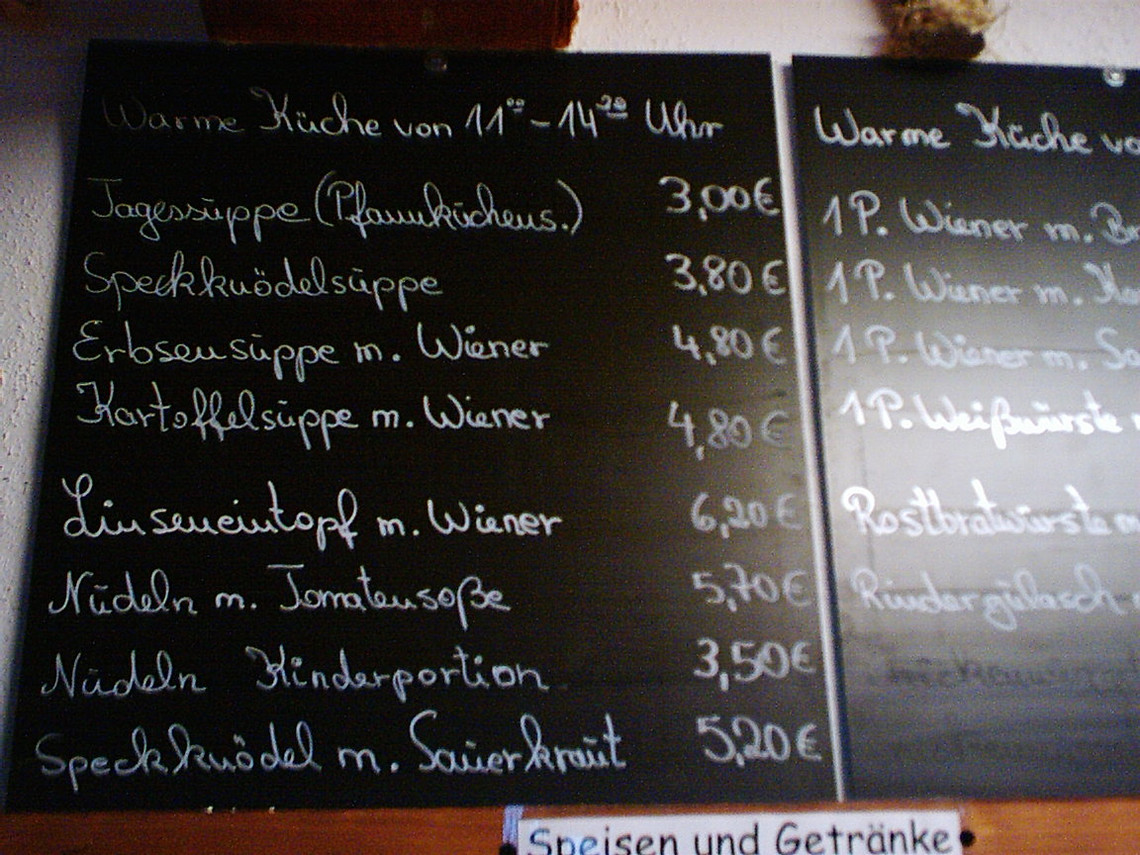 Warme Küche von 11⁰⁰-14³⁰ Uhr
Tagessuppe (Pfannkuchens.) 3,00€
Speckknödelsuppe 3,80€
Erbsensuppe m. Wiener 4,80€
Kartoffelsuppe m. Wiener 4,80€
Linseneintopf m. Wiener 6,20€
Nudeln m. Tomatensoße 5,70€
Nudeln Kinderportion 3,50€
Speckknödel m. Sauerkraut 5,20€
Warme Küche vo
1 P. Wiener m. Br
1 P. Wiener m. Ka
1 P. Wiener m. Sa
1 P. Weißwürste
Rostbratwürste m
Rindergulasch
Speisen und Getränke